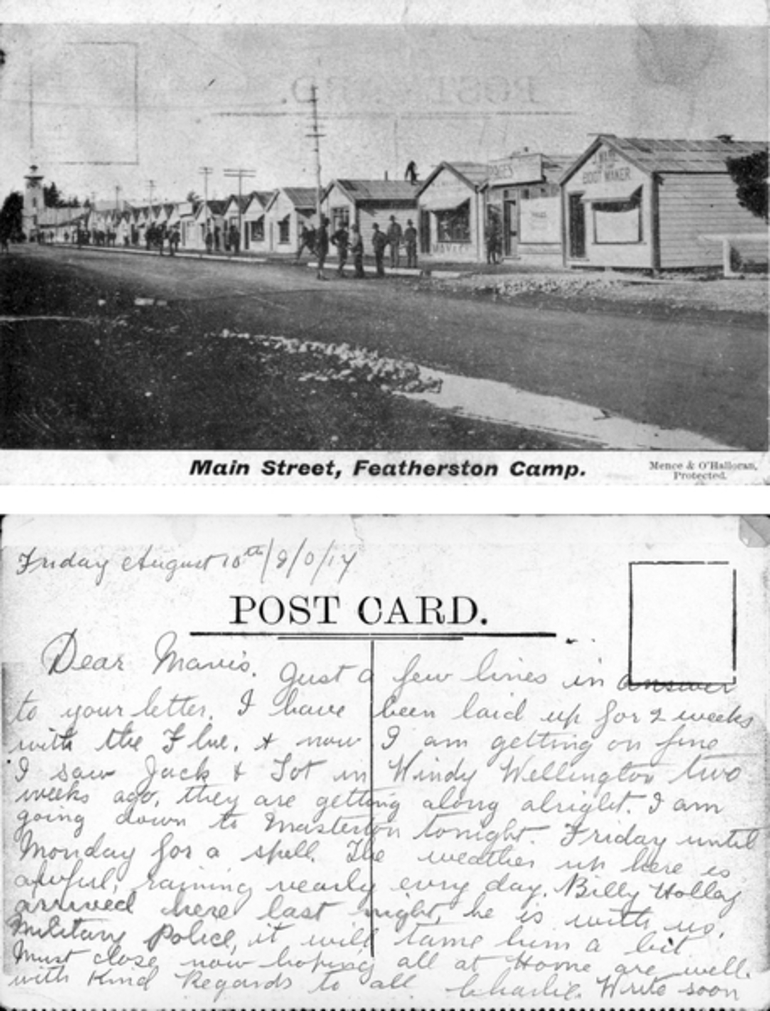 POST CARD.
BOOT MAKER
Main Street, Featherston Camp.
Mence & O'Halloran,
Protected.
Friday August 10th/8/0/17
POST CARD.
Dear Mavis. Just a few lines in answer
to your letter. I have been laid up for 2 weeks
with the Flue, & now I am getting on fine
I saw Jack & Tot in Windy Wellington two
weeks ago, they are getting along alright. I am
going down to Masterton tonight. Friday until
Monday for a spell. The weather up here is
awful, raining nearly every day. Billy
arrived here last night, he is with us,
Military Police, it will tame him a bit
Must close now hoping all at Home are well.
with Kind Regards to all Charlie. Write soon